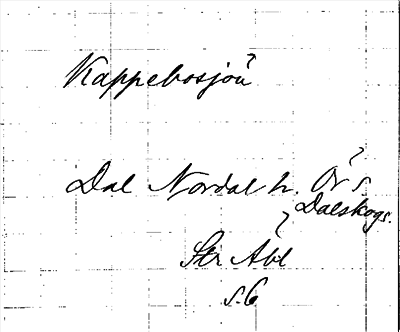 Kappebosjön
Dal Nordal h. Ör s.
Dalskogs.
Str Abl
s. 6